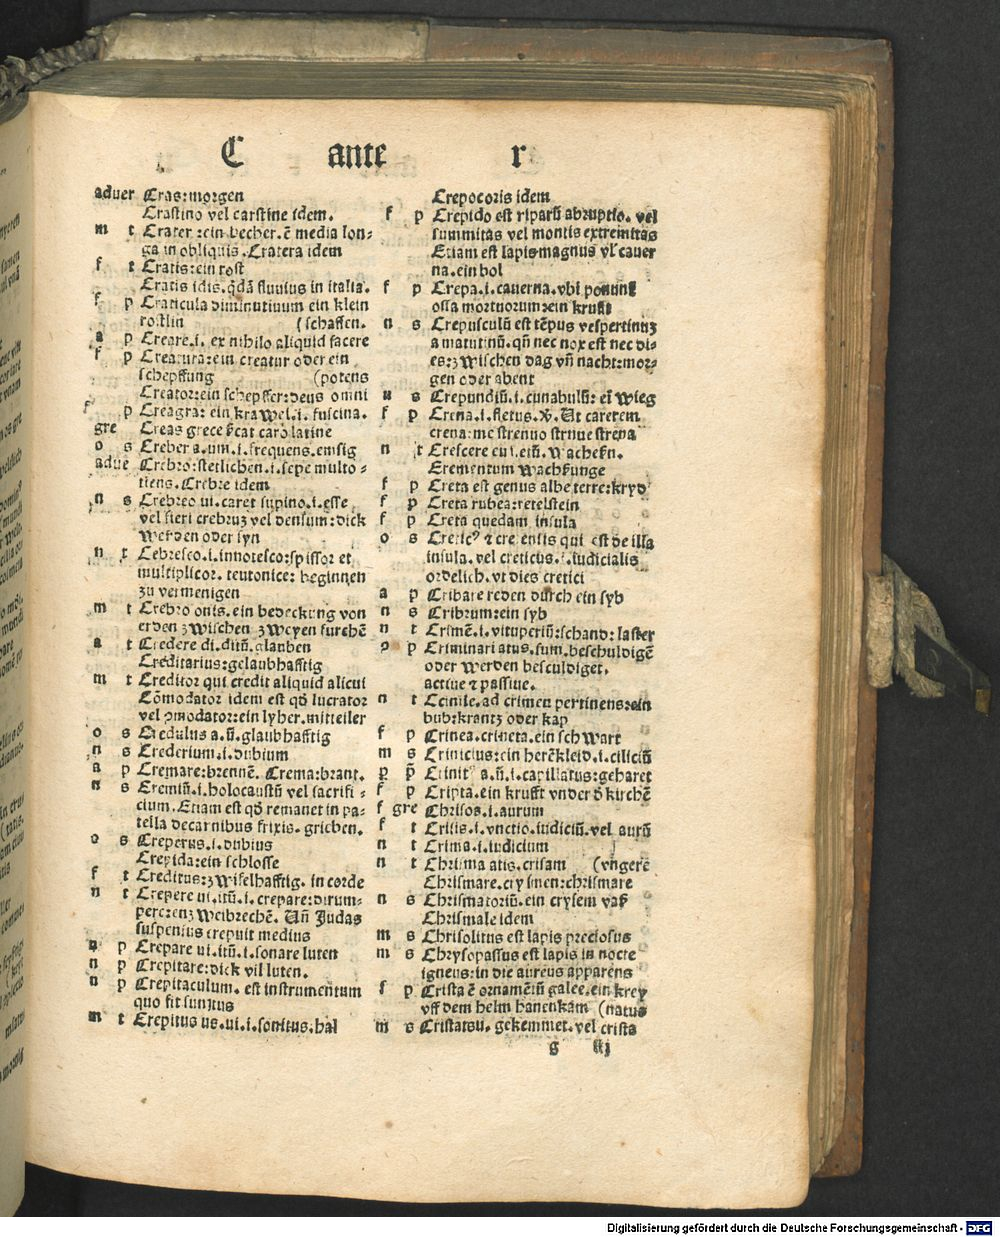 C ante r
aduer Cras:morgen
Crastino vel carstine idem.
m t Crater :ein becher.ē media lon⸗
ga in obliquis.Cratera idem
f t Cratis:ein rost
Cratis idis.q̄dā fluuius in italia.
f p Craticula diminutiuum ein klein
rostlin (schaffen.
a p Creare.i. ex nihilo aliquid facere
f p Creatura:ein creatur oder ein
schepffung (potens
Creator:ein schepffer:deus omni
f p Creagra: ein krawel.i. fuscina.
gre Creas grece dicat caro latine
o s Creber a.um.i.frequens.emsig
adue Crebro:stetlichen.i.sepe multo⸗
tiens.Crebre idem
n s Crebreo ui.caret supino.i.esse
vel fieri crebruz vel densum:dick
werden oder syn
n t Cebresco.i.innotesco:spissor et
multiplicor. teutonice: beginnen
zu vermenigen
m t Crebro onis.ein bedeckung von
erden zwischen zweyen furchē
a t Credere di.ditū.glauben
Creditarius:gelaubhafftig
m t Creditor qui credit aliquid alicui
Cōmodator idem est qd lucrator
vel ꝯmodator:ein lyher.mitteiler
o s Credulus a.ū.glaubhafftig
n s Crederium.i.dubium
a p Cremare:brennē. Crema:brant.
n s Cremiū.i.holocaustū vel sacrifi⸗
cium.Etiam est qd remanet in pa⸗
tella decarnibus frixis.grieben.
o s Creperus.i.dubius
Crepida:ein schlosse
f t Creditus:zwifelhafftig. in corde
n t Crepere ui.itū.i.crepare:dirum⸗
perc:enzweibrechē. Uñ Judas
suspensus crepuit medius
n p Crepare ui.itū.i.sonare luten
n p Crepitare:dick vil luten.
n p Crepitaculum. est instrumentum
quo fit sunitus
m t Crepitus us.ui.i.sonitus.hal
Crepocoris idem
f p Crepido est riparū abruptio. vel
summitas vel montis extremitas
Etiam est lapis magnus vl' cauer
na.ein hol
f p Crepa.i.cauerna.vbi ponunt
ossa mortuorum:ein krufft
n s Crepusculū est tēpus vespertinuz
a matutinū. qñ nec nox est nec di⸗
es:zwischen dag vñ nacht:mor⸗
gen oder abent
n s Crepundiū.i.cunabulū: ei wieg
f p Crena.i.fletus. Ut caretem
crena: me strenuo strnue strena
n t Crescere eui.etū.wachen.
Crementum wachunge
f p Creta est genus albe terre:kryd
f p Creta rubea:retelstein
f p Creta quedam insula
o s Cretic⁹ ⁊ cre ensis qui est de illa
insula. vel creticus.i.iudicialis
ordelich. vt dies cretici
a p Cribare reden durch ein syb
n s Cribrum:ein syb
n t Crimē.i.vituperiū:schand: laster
o p Criminari atus.sum.beschuldigē
oder werden besculdiget.
actiue ⁊ passiue.
n t Crinile.ad crimen pertinens:ein
bub:krantz oder kap
f p Crinea.crineta.ein schwart
m s Crinicius:ein herēkleid.i.ciliciū
p p Crinit⁹ a.ū.i.capillatus:geharet
f p Cripta.ein krufft vnder d kirchē
f gre Chrisos.i.aurum
f t Crisis.i.vnctio.iudiciū.vel aurū
n t Crima.i.iudicium
n t Chrisma atis.crisam (vngerē
Chrismare.crysmen:chrismare
n s Chrismatoriū.ein crysem vaß
Chrismale idem
m s Chrisolitus est lapis preciosus
m s Chrysopassus est lapis in nocte
igneus:in die aureus apparens
f p Crista ē ornamētū galee.ein krey
vff dem helm hanenkam (natus
m s Cristatsu. gekemmet.vel crista
g iij
Digitalisierung gefördert durch die Deutsche Forschungsgemeinschaft - DFG